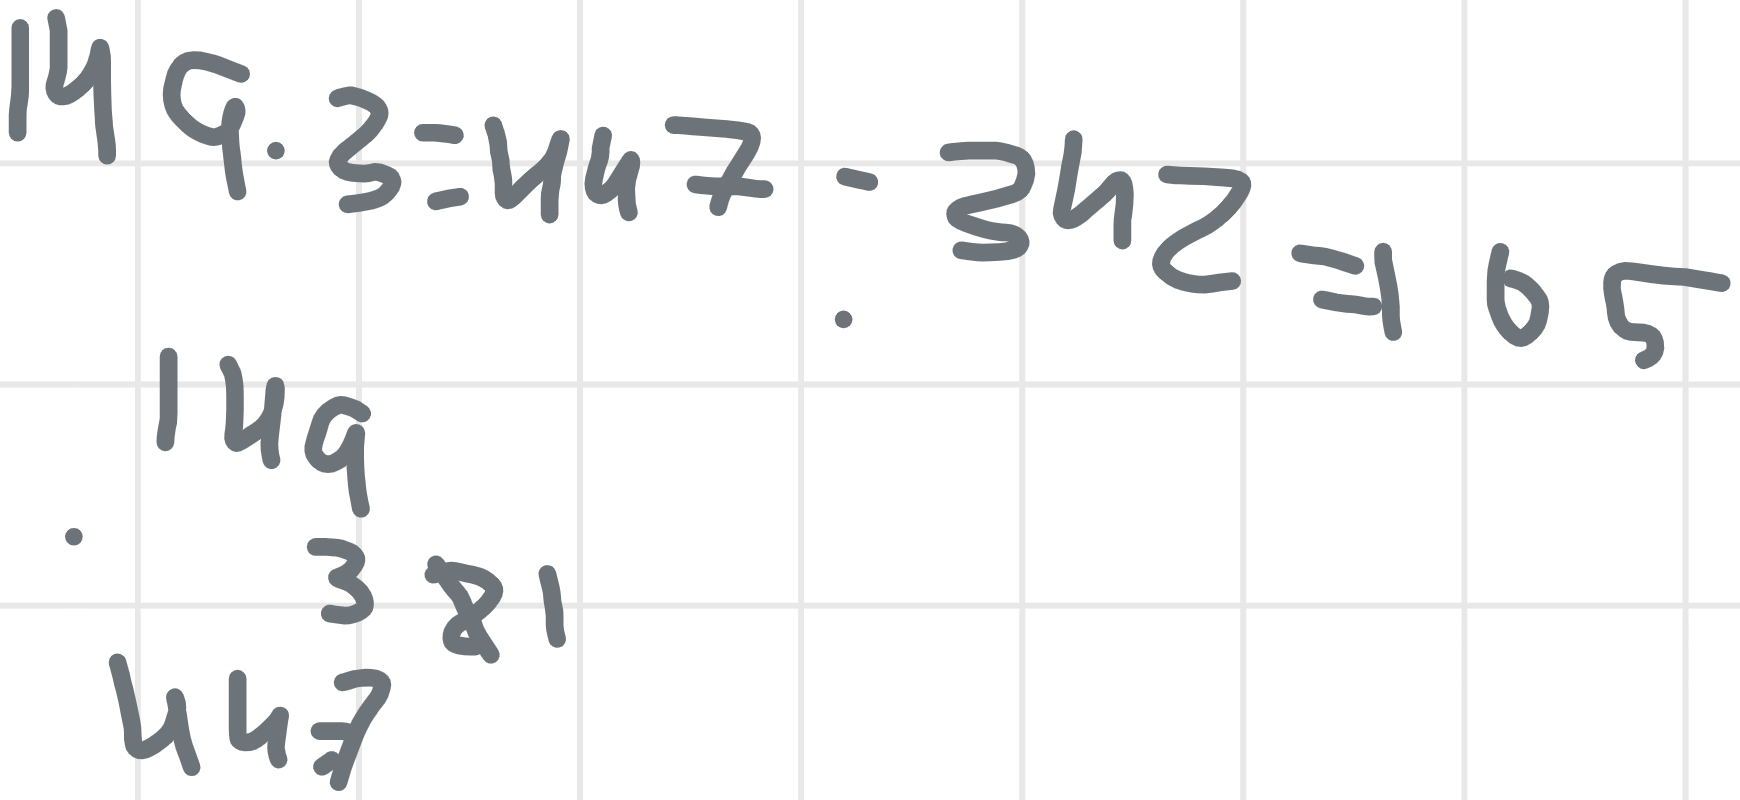 149.3=447-342=105
149
. 3 81
447